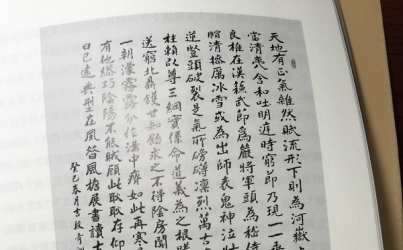 天地有正氣雜然賦流形下則為河嶽
當清夷含和吐明庭時窮節乃現一
良椎在漢蘇武節為嚴將軍頭為嵇侍
帽清操厲冰雪或為出師表鬼神泣壯
逆豎頭破裂是氣所磅礴凜烈萬古
柱賴以尊三綱實係命道義為之根
送窮北鼎鑊甘如飴求之不得陰房闃
一朝濛霧露分作溝中瘠如此再寒
有他繆巧陰陽不能賊顧此耿耿存仰
日已遠典型在夙昔風檐展書讀古
癸巳春月吉段奇